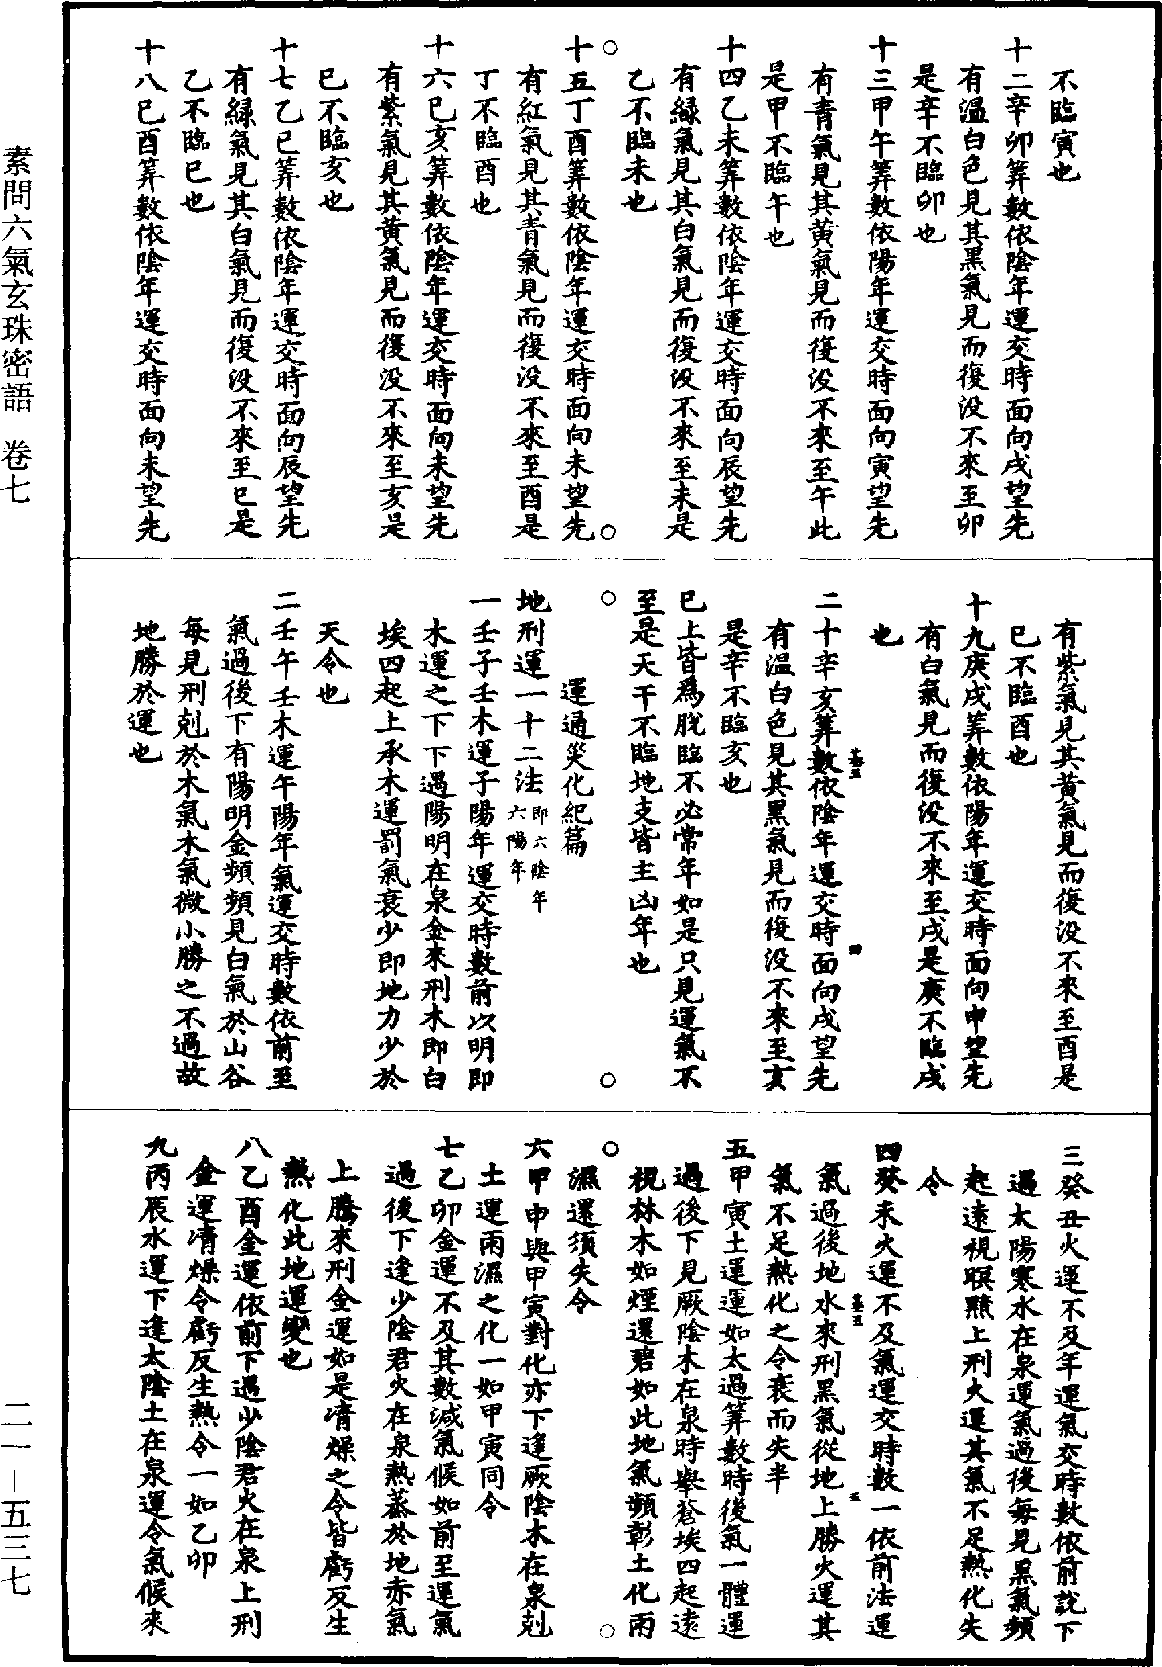 不臨寅也
十二辛卯筭數依陰年運交時面向戌望先
有溫白色見其黑氣見而復没不來至卯
是辛不臨卯也
十三甲午筭數依陽年運交時面向寅望先
有青氣見其黃氣見而復没不來至午此
是甲不臨午也
十四乙未筭數依陰年運交時面向辰望先
有緑氣見其白氣見而復没不來至未是
乙不臨未也
十五丁酉筭數依陰年運交時面向未望先
有紅氣見其青氣見而復没不來至酉是
丁不臨酉也
十六已亥筭數依陰年運交時面向未望先
有紫氣見其黃氣見而復没不來至亥是
已不臨亥也
十七乙巳筭數依陰年運交時面向辰望先
有緑氣見其白氣見而復没不來至巳是
乙不臨巳也
十八已酉筭數依陰年運交時面向未望先
有紫氣見其黃氣見而復没不來至酉是
已不臨酉也
十九庚戌筭數依陽年運交時面向申望先
有白氣見而復没不來至戌是庚不臨戌
也
二十辛亥筭數依陰年運交時面向戌望先
有溫白色見其黑氣見而復没不來至亥
是辛不臨亥也
已上皆爲脫臨不必常年如是只見運氣不
至是天干不臨地支皆主凶年也
運通災化紀篇
地刑運一十二法即六陰年
六陽年
一壬子壬木運子陽年運交時數前以明即
木運之下下遇陽明在泉金來刑木即白
埃四起上承木運罰氣衰少即地力少於
天令也
二壬午壬木運午陽年氣運交時數依前至
氣過後下有陽明金頻頻見白氣於山谷
每見刑剋於木氣木氣微小勝之不過故
地勝於運也
三癸丑火運不及年運氣交時數依前說下
遇太陽寒水在泉運氣過後每見黑氣頻
起遠視暝黰上刑火運其氣不足熱化失
令
四癸未火運不及氣運交時數一依前法運
氣過後地水來刑黑氣從地上勝火運其
氣不足熱化之令衰而失半
五甲寅土運運如太過筭數時後氣一體運
過後下見厥陰木在泉時舉蒼埃四起遠
視林木如煙還碧如此地氣頻彰土化雨
濕還須失令
六甲申與甲寅對化亦下逢厥陰木在泉剋
土運雨濕之化一如甲寅同令
七乙卯金運不及其數減氣候如前至運氣
過後下逢少陰君火在泉熱蒸於地赤氣
上騰來刑金運如是凊燥之令皆虧反生
熱化此地運變也
八乙酉金運依前下遇少陰君火在泉上刑
金運凊燥令虧反生熱令一如乙卯
九丙辰水運下逢太陰土在泉運令氣候來
素問六氣玄珠密語 卷七
二一—五三七